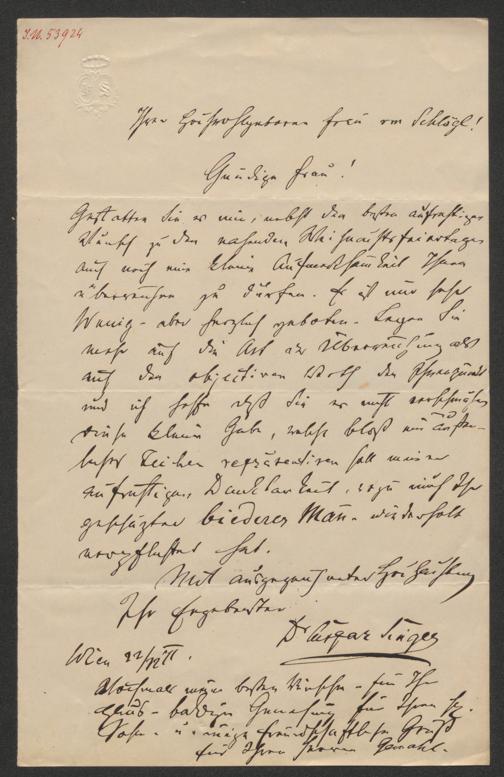 J.N. 53924
Ihrer Hochwohlgeboren Frau von Schlögl!
Gnädige Frau!
Gestatten Sie es mir, nebst den besten aufrichtigen
Wünschen zu den nahenden Weihnachtsfeiertagen
auch noch eine kleine Aufmerksamkeit Ihnen
überreichen zu dürfen. Es ist nur sehr
Wenig – aber herzlich geboten. Legen Sie
mehr auf die Art der Überreichung als
auf den objectiven Werth des
und ich hoffe daß Sie es nicht verschmähen
diese kleine Gabe, welche bloß ein äußer-
liches Zeichen repräsentiren soll meiner
aufrichtigen Dankbarkeit, wozu mich Ihr
geschätzter biederer Mann wiederholt
verpflichtet hat.
Mit ausgezeichneter Hochachtung
Ihr Ergebenster
Dr Singer
Wien 22/XII
Nochmals meine besten Wünsche – für Ihr
Haus – baldige Genesung für Ihren H.
Sohn – u. innige freundschaftliche Grüße
für Ihren Herrn Gemahl.